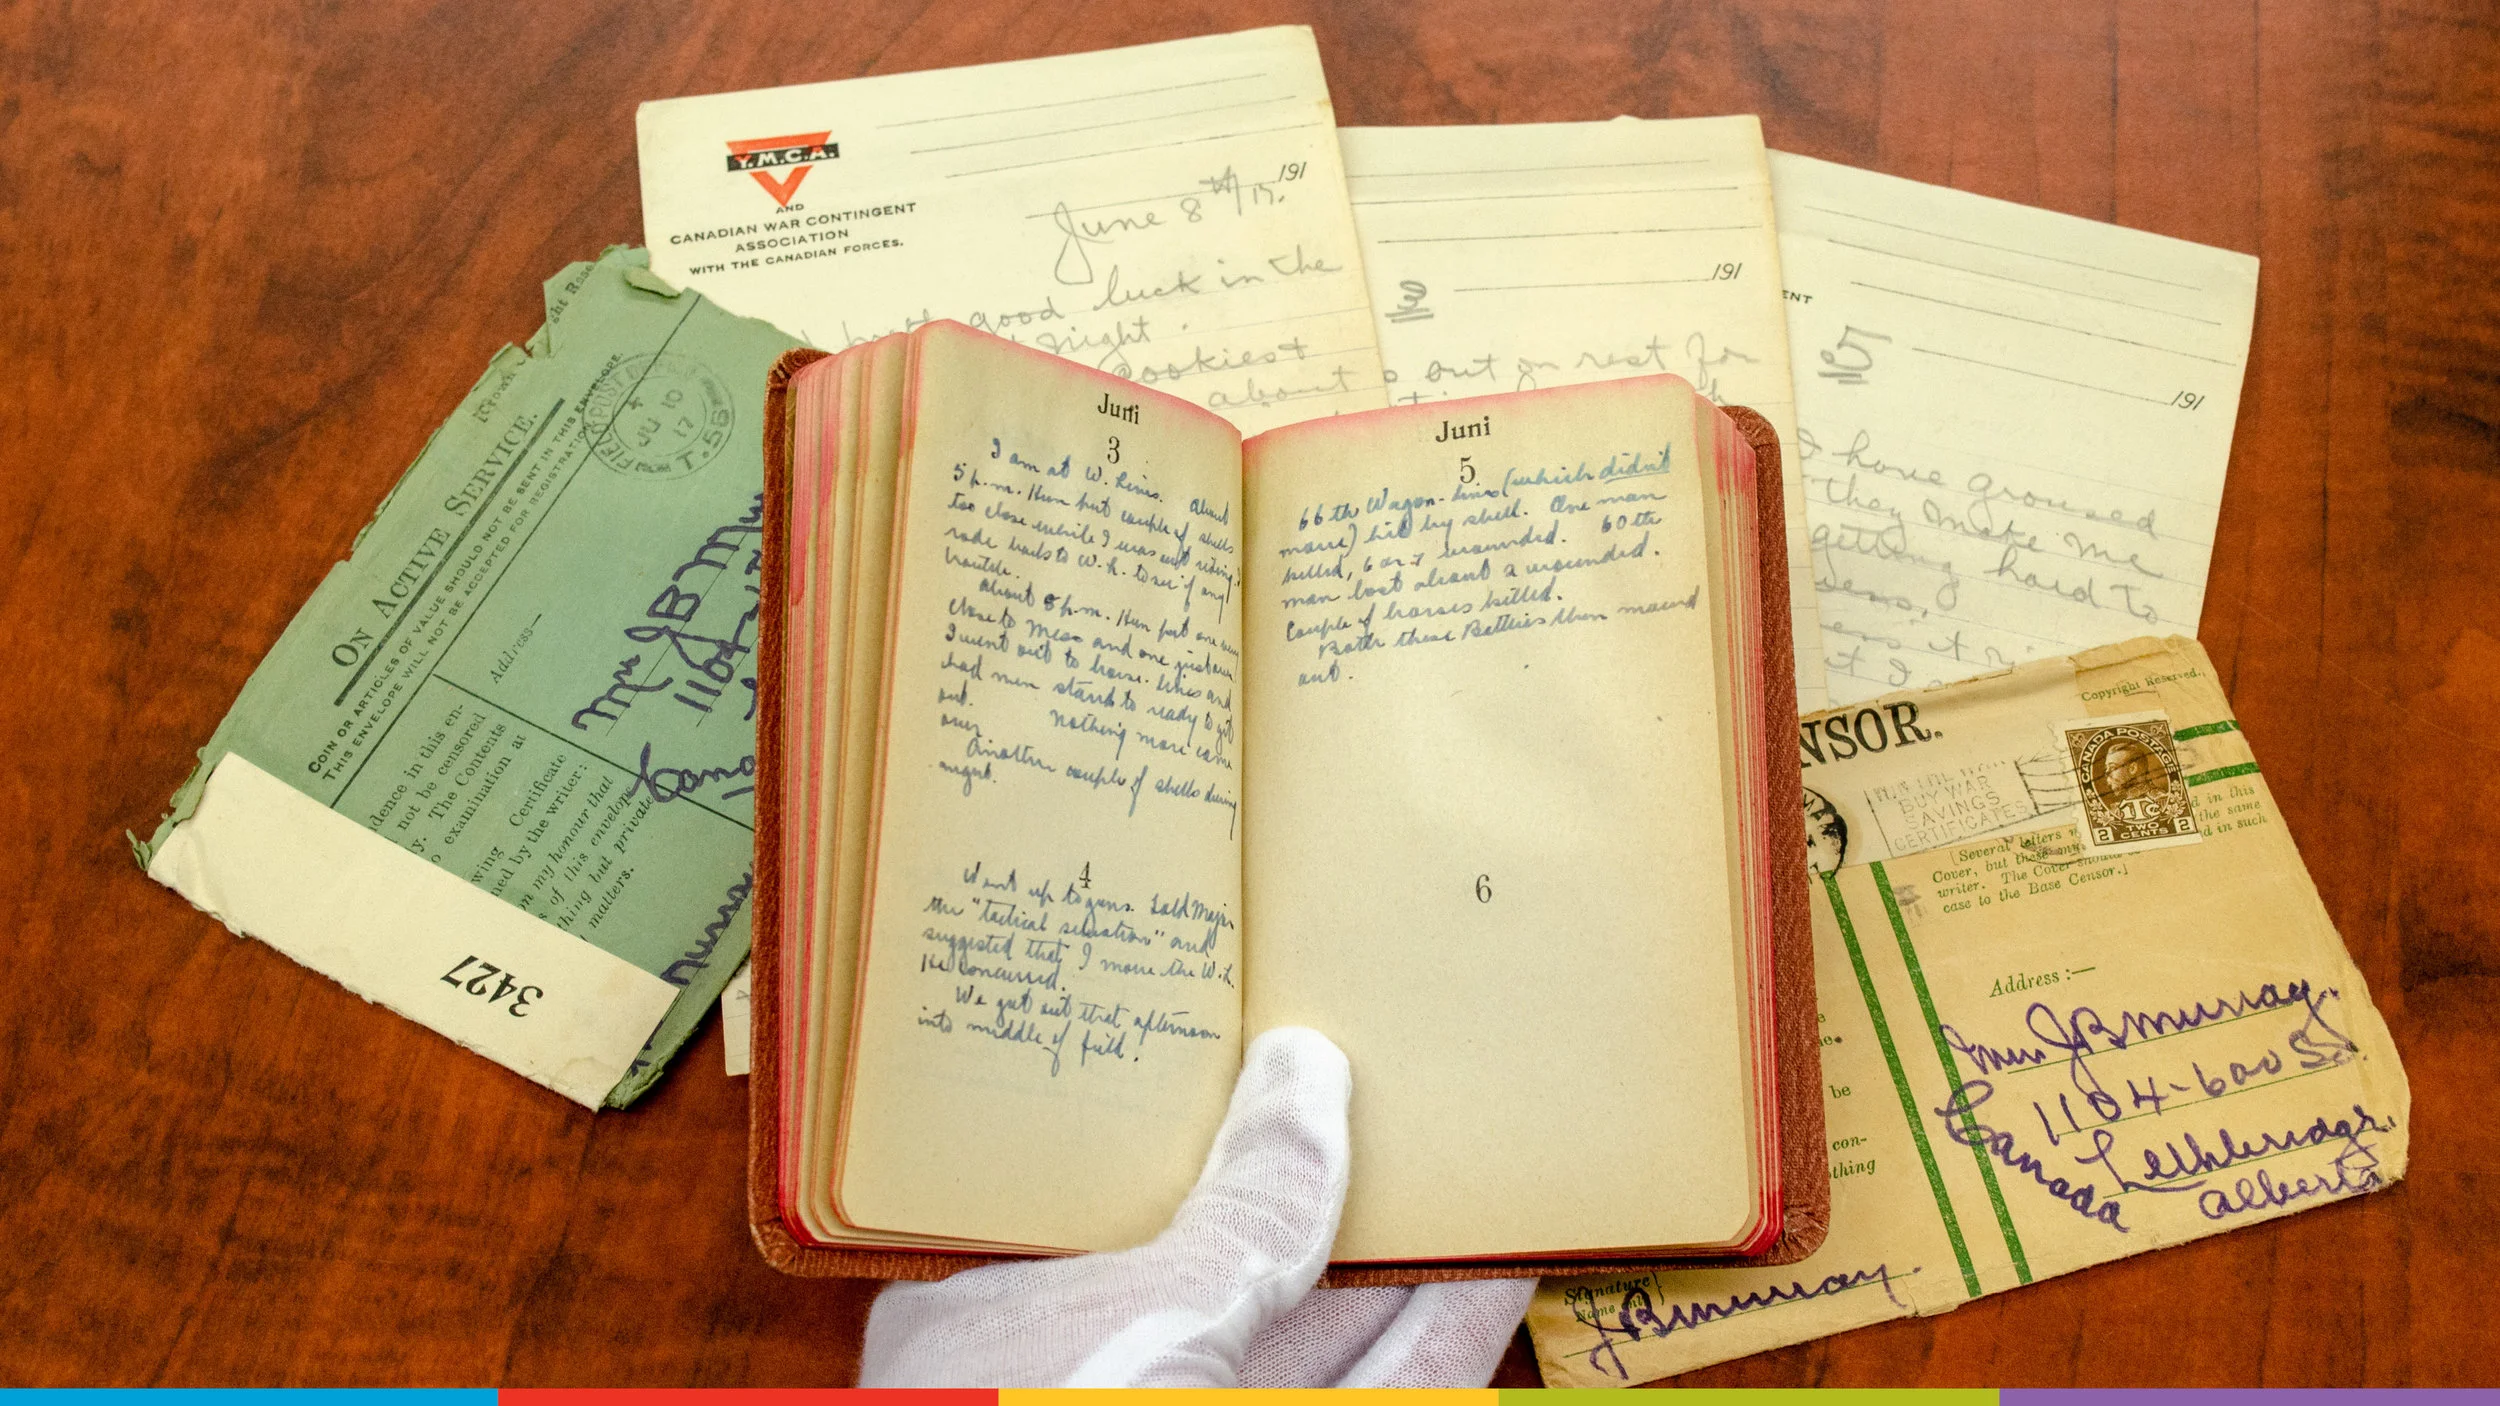 Y.M.C.A.
AND
CANADIAN WAR CONTINGENT
ASSOCIATION
WITH THE CANADIAN FORCES.
191
June 8th/17.
good luck in the
night.
cookies &
about
191
3
out on rest for
ENT
5
191
I have groused
they make me
getting hard to
it I
ON ACTIVE SERVICE.
COIN OR ARTICLES OF VALUE SHOULD NOT BE SENT IN THIS ENVELOPE.
THIS ENVELOPE WILL NOT BE ACCEPTED FOR REGISTRATION
FIELD POST OFFICE
JU 10
17
T.56
Address—
Mrs J B Mu
1104
Cana
dence in this en-
not be censored
y. The Contents
o examination at
wing Certificate
ned by the writer:
on my honour that
s of this envelope
thing but private
matters.
3427
Juni
3
I am at W. Lines. About
5 p.m. Hun put couple of shells
too close while I was out riding.
rode back to W.L. to see if any
trouble.
About 8 p.m. Hun put one very
close to Mess and one just over
I went out to horse lines and
had men stand to ready to get
out. Nothing more came
over.
Another couple of shells during
night.
4
Went up to guns. Told Major
the "tactical situation" and
suggested that I move the W.L.
He concurred.
We got out that afternoon
into middle of field.
Juni
5
66th Wagon-lines (which didn't
move) hit by shell. One man
killed, 6 or 7 wounded. 60th
man lost about 2 wounded.
Couple of horses killed.
Both these Batteries then moved
out.
6
NSOR.
Copyright Reserved.
BUY WAR
SAVINGS
CERTIFICATES
CANADA POSTAGE
1Tc
2 TWO CENTS 2
d in this
the same
d in such
[Several letters
Cover, but these
writer. The Cover should
case to the Base Censor.]
Address :—
Mrs J B Murray.
1104-6 av S.
Lethbridge.
Canada Alberta
be
con-
thing
Signature
Name only
J B Murray.